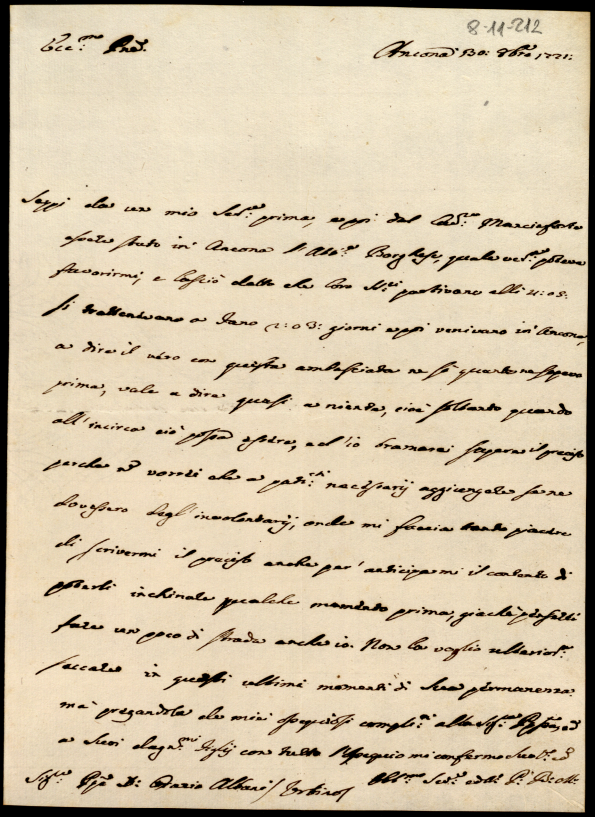 8-11-212
Ecc.mo Pne.
Ancona 30: 8bre 1721:
Seppi da un mio Ser.re prima, e poi dal Cav.re Marciaforte
essere stato in Ancona l'Abb.e Borghese, quale
favorirmi, e lasciò detto che loro partivano alli 2: o 3:
si trattenivano a Fano 2: o 3: giorni e poi venivano in Ancona,
a dire il vero con questa ambasciata ne sò quanto ne sapevo
prima, vale a dire quasi a niente, cioè soltanto quando
all'incirca ciò possa essere, ed io bramarei sapere il preciso
perche vorrei che a pati.ti necessarij aggiongere se ne
dovessero degl'involontarij, onde mi faccia tanto piacere
di scrivermi il preciso anche per anticiparmi il contento di
poterli inchinare qualche momento prima, giache
fare un poco di strada anche io. Non la voglio ulterior.te
seccare in questi ultimi momenti di Sua permanenza
mà pregandola de miei ossequiosi complim.ti alla Sig.ra
a Suoi degn.mi con tutto l'ossequio mi confermo
Sig.re Pn̄e D: Orazio Albani / Urbino /